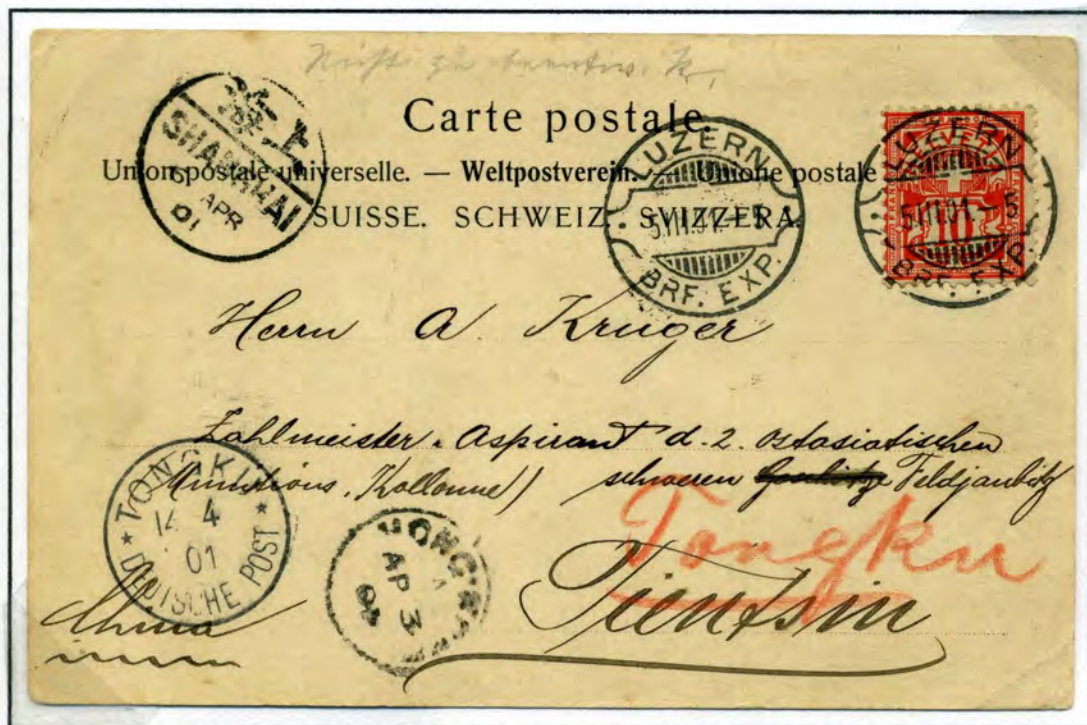 Nicht zu
Carte postale.
Union postale universelle. — Weltpostverein. — Unione postale
SUISSE. SCHWEIZ. SVIZZERA.
上海
SHANGHAI
6
APR
01
LUZERN
5.III.01.–5
BRF. EXP.
LUZERN
5.III.01.–5
BRF. EXP.
HELVETIA
10
Herrn A. Kruger
Zahlmeister-Aspirant d. 2. Ostasiatischen
Munitions-Kollonne) schweren Feldjaubitz
Tongku
Tientsin
China
TONGKU
14 4
01
DEUTSCHE POST
HONG-K
A
AP 3
01